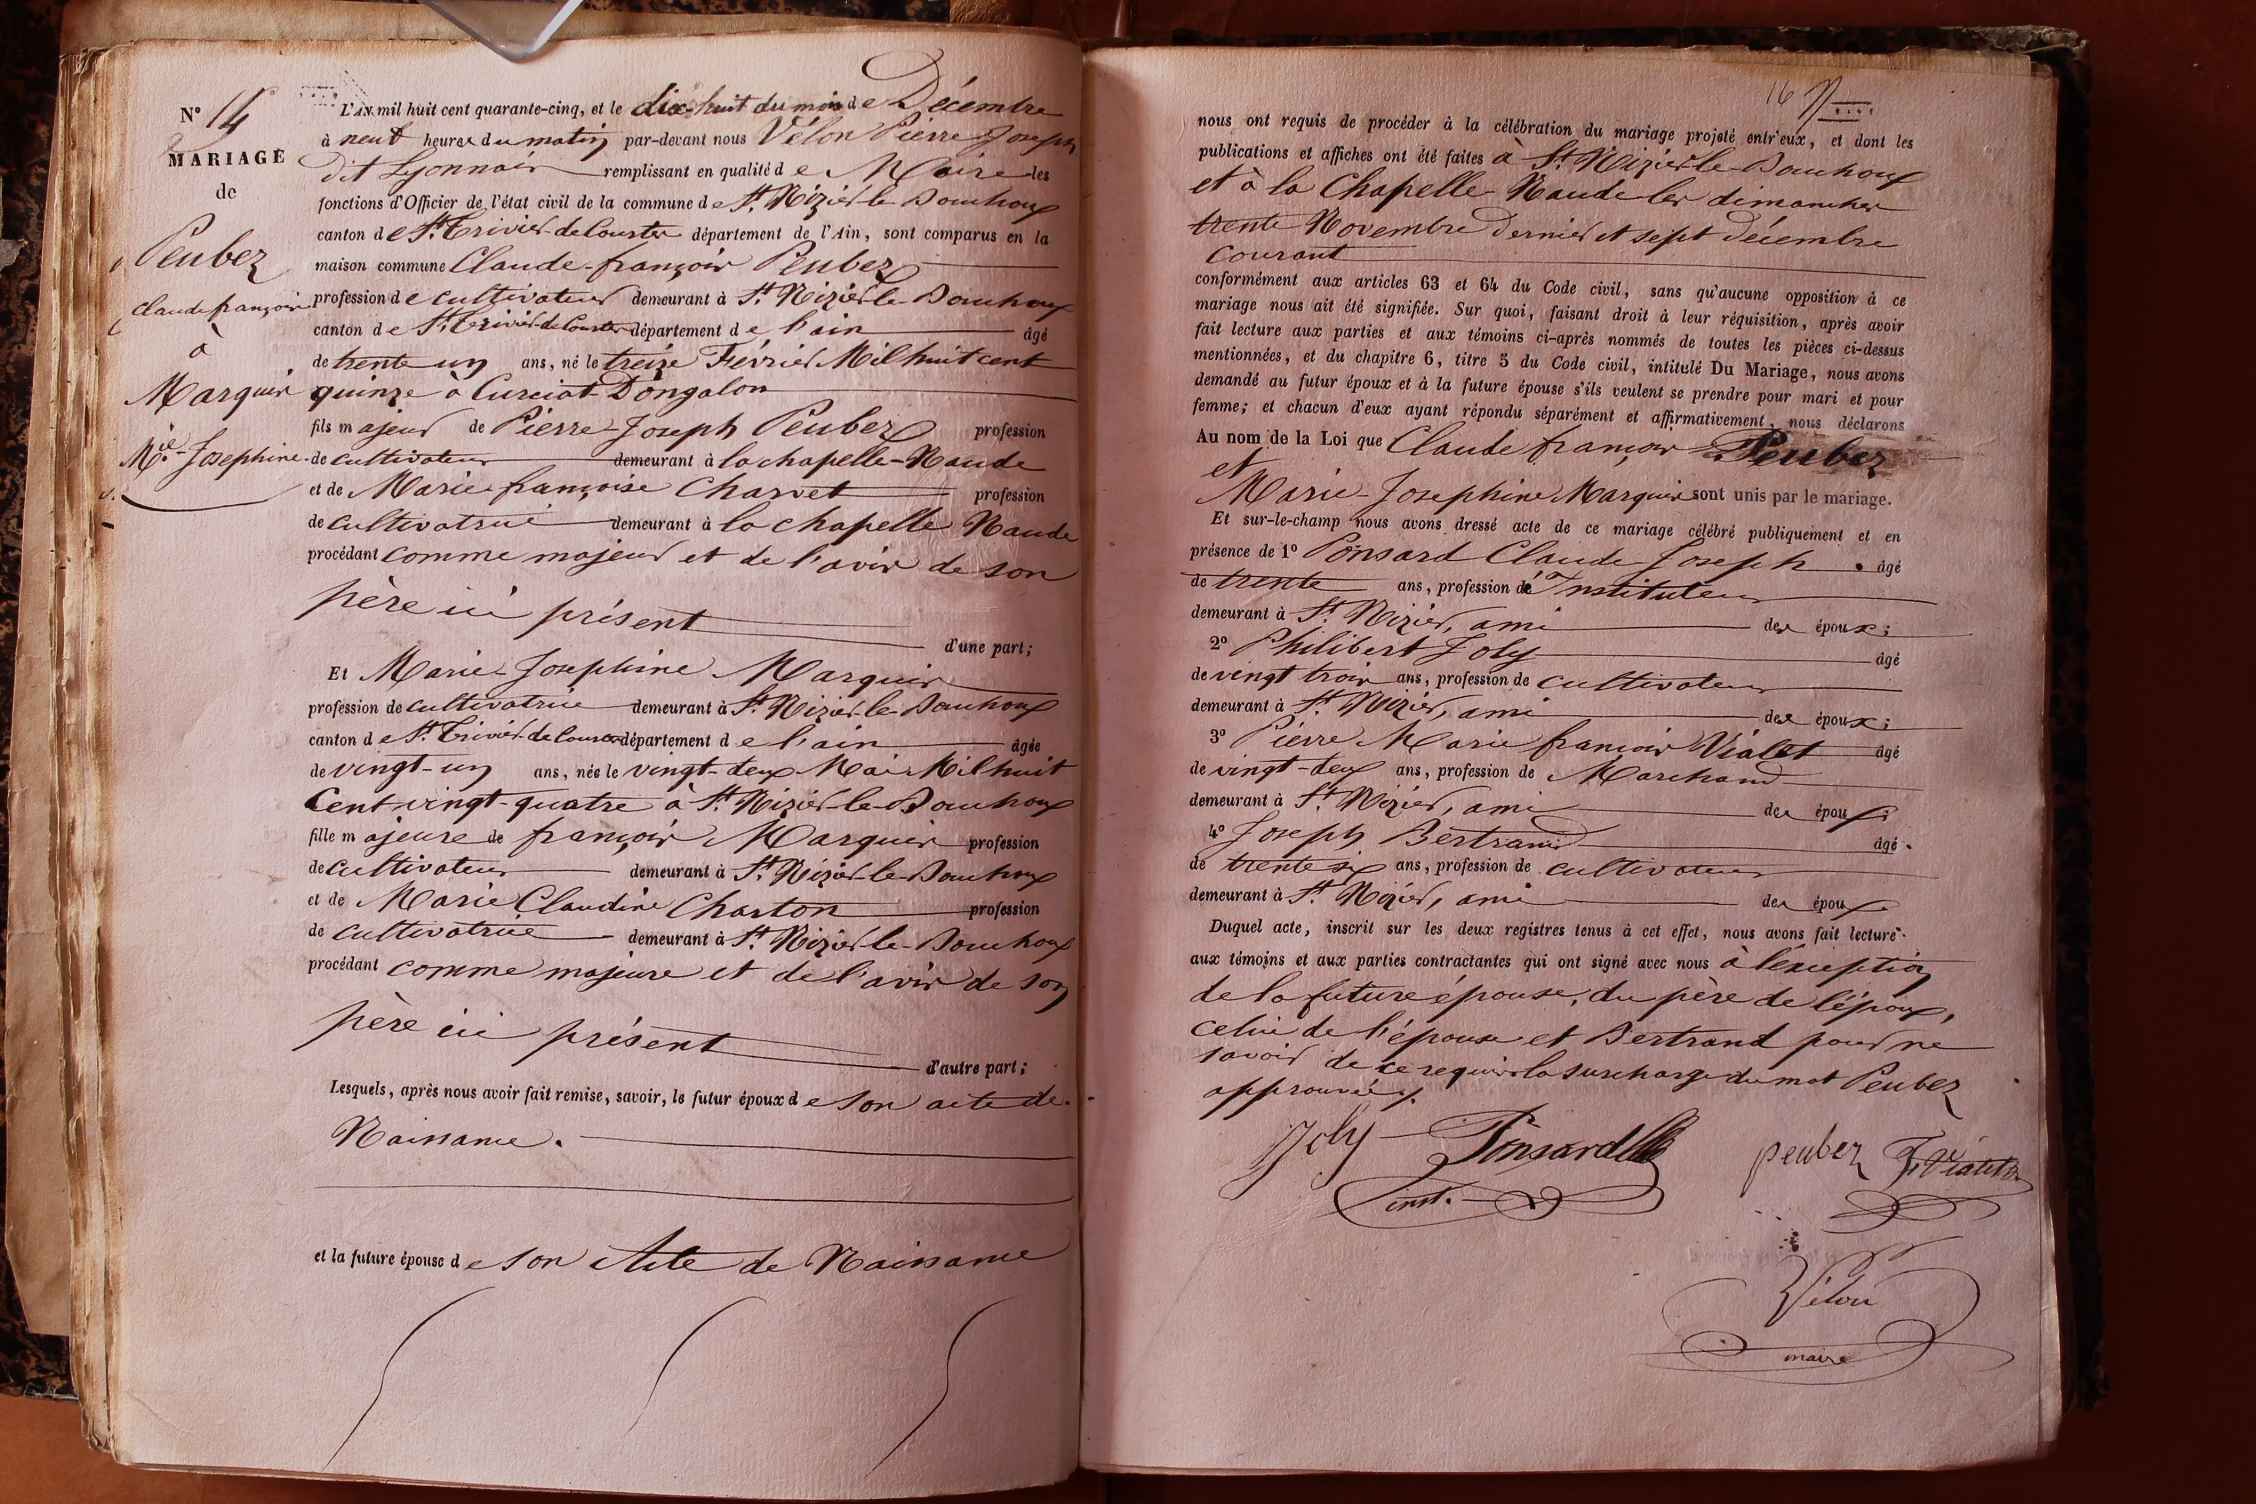 N° 14
MARIAGE
de
Peubez
Claude françois
à
Marquis
Mie Josephine
L'AN mil huit cent quarante-cinq, et le dix-huit du mois de Décembre
à neuf heures du matin par-devant nous Vélon Pierre Joseph
dit Lyonnais remplissant en qualité de Maire les
fonctions d'Officier de l'état civil de la commune de St. Nizier-le-Bouhoux
canton de St. Trivier-de-Courtes département de l'Ain, sont comparus en la
maison commune Claude-françois Peubez
profession de cultivateur demeurant à St. Nizier-le-Bouhoux
canton de St. Trivier-de-Courtes département de l'ain âgé
de trente un ans, né le treize Février Mil huit cent
quinze à Curciat-Dongalon
fils majeur de Pierre-Joseph Peubez profession
de cultivateur demeurant à la chapelle-Naude
et de Marie-françoise Charvet profession
de cultivatrice demeurant à la chapelle Naude
procédant comme majeur et de l'avis de son
père ici présent
d'une part;
Et Marie-Josephine Marquis
profession de cultivatrice demeurant à St. Nizier-le-Bouhoux
canton de St. Trivier-de-Courtes département de l'ain âgée
de vingt-un ans, née le vingt-deux Mai Mil huit
Cent vingt-quatre à St. Nizier-le-Bouhoux
fille majeure de françois Marquis profession
de cultivateur demeurant à St. Nizier-le-Bouhoux
et de Marie Claudine Charton profession
de cultivatrice demeurant à St. Nizier-le-Bouhoux
procédant comme majeure et de l'avis de son
père ici présent
d'autre part;
Lesquels, après nous avoir fait remise, savoir, le futur époux de son acte de
Naissance.
et la future épouse de son Acte de Naissance
16
nous ont requis de procéder à la célébration du mariage projeté entr'eux, et dont les
publications et affiches ont été faites à St. Nizier-le-Bouhoux
et à la Chapelle-Naude les dimanches
trente Novembre dernier et sept décembre
courant
conformément aux articles 63 et 64 du Code civil, sans qu'aucune opposition à ce
mariage nous ait été signifiée. Sur quoi, faisant droit à leur réquisition, après avoir
fait lecture aux parties et aux témoins ci-après nommés de toutes les pièces ci-dessus
mentionnées, et du chapitre 6, titre 5 du Code civil, intitulé Du Mariage, nous avons
demandé au futur époux et à la future épouse s'ils veulent se prendre pour mari et pour
femme; et chacun d'eux ayant répondu séparément et affirmativement, nous déclarons
Au nom de la Loi que Claude françois Peubez
et
Marie-Josephine Marquis sont unis par le mariage.
Et sur-le-champ nous avons dressé acte de ce mariage célébré publiquement et en
présence de 1° Ponsard Claude Joseph âgé
de trente ans, profession d'Instituteur
demeurant à St. Nizier, ami des époux;
2° Philibert Joly âgé
de vingt trois ans, profession de cultivateur
demeurant à St. Nizier, ami des époux;
3° Pierre Marie françois Vialet âgé
de vingt-deux ans, profession de Marchand
demeurant à St. Nizier, ami des époux;
4° Joseph Bertrand âgé
de trente six ans, profession de cultivateur
demeurant à St. Nizier, ami des époux
Duquel acte, inscrit sur les deux registres tenus à cet effet, nous avons fait lecture
aux témoins et aux parties contractantes qui ont signé avec nous à l'exception
de la future épouse, du père de l'époux,
celui de l'épouse et Bertrand pour ne
savoir de ce requis la surcharge du mot Peubez
approuvée.
Joly Ponsard peubez
inst.
Vélon
maire